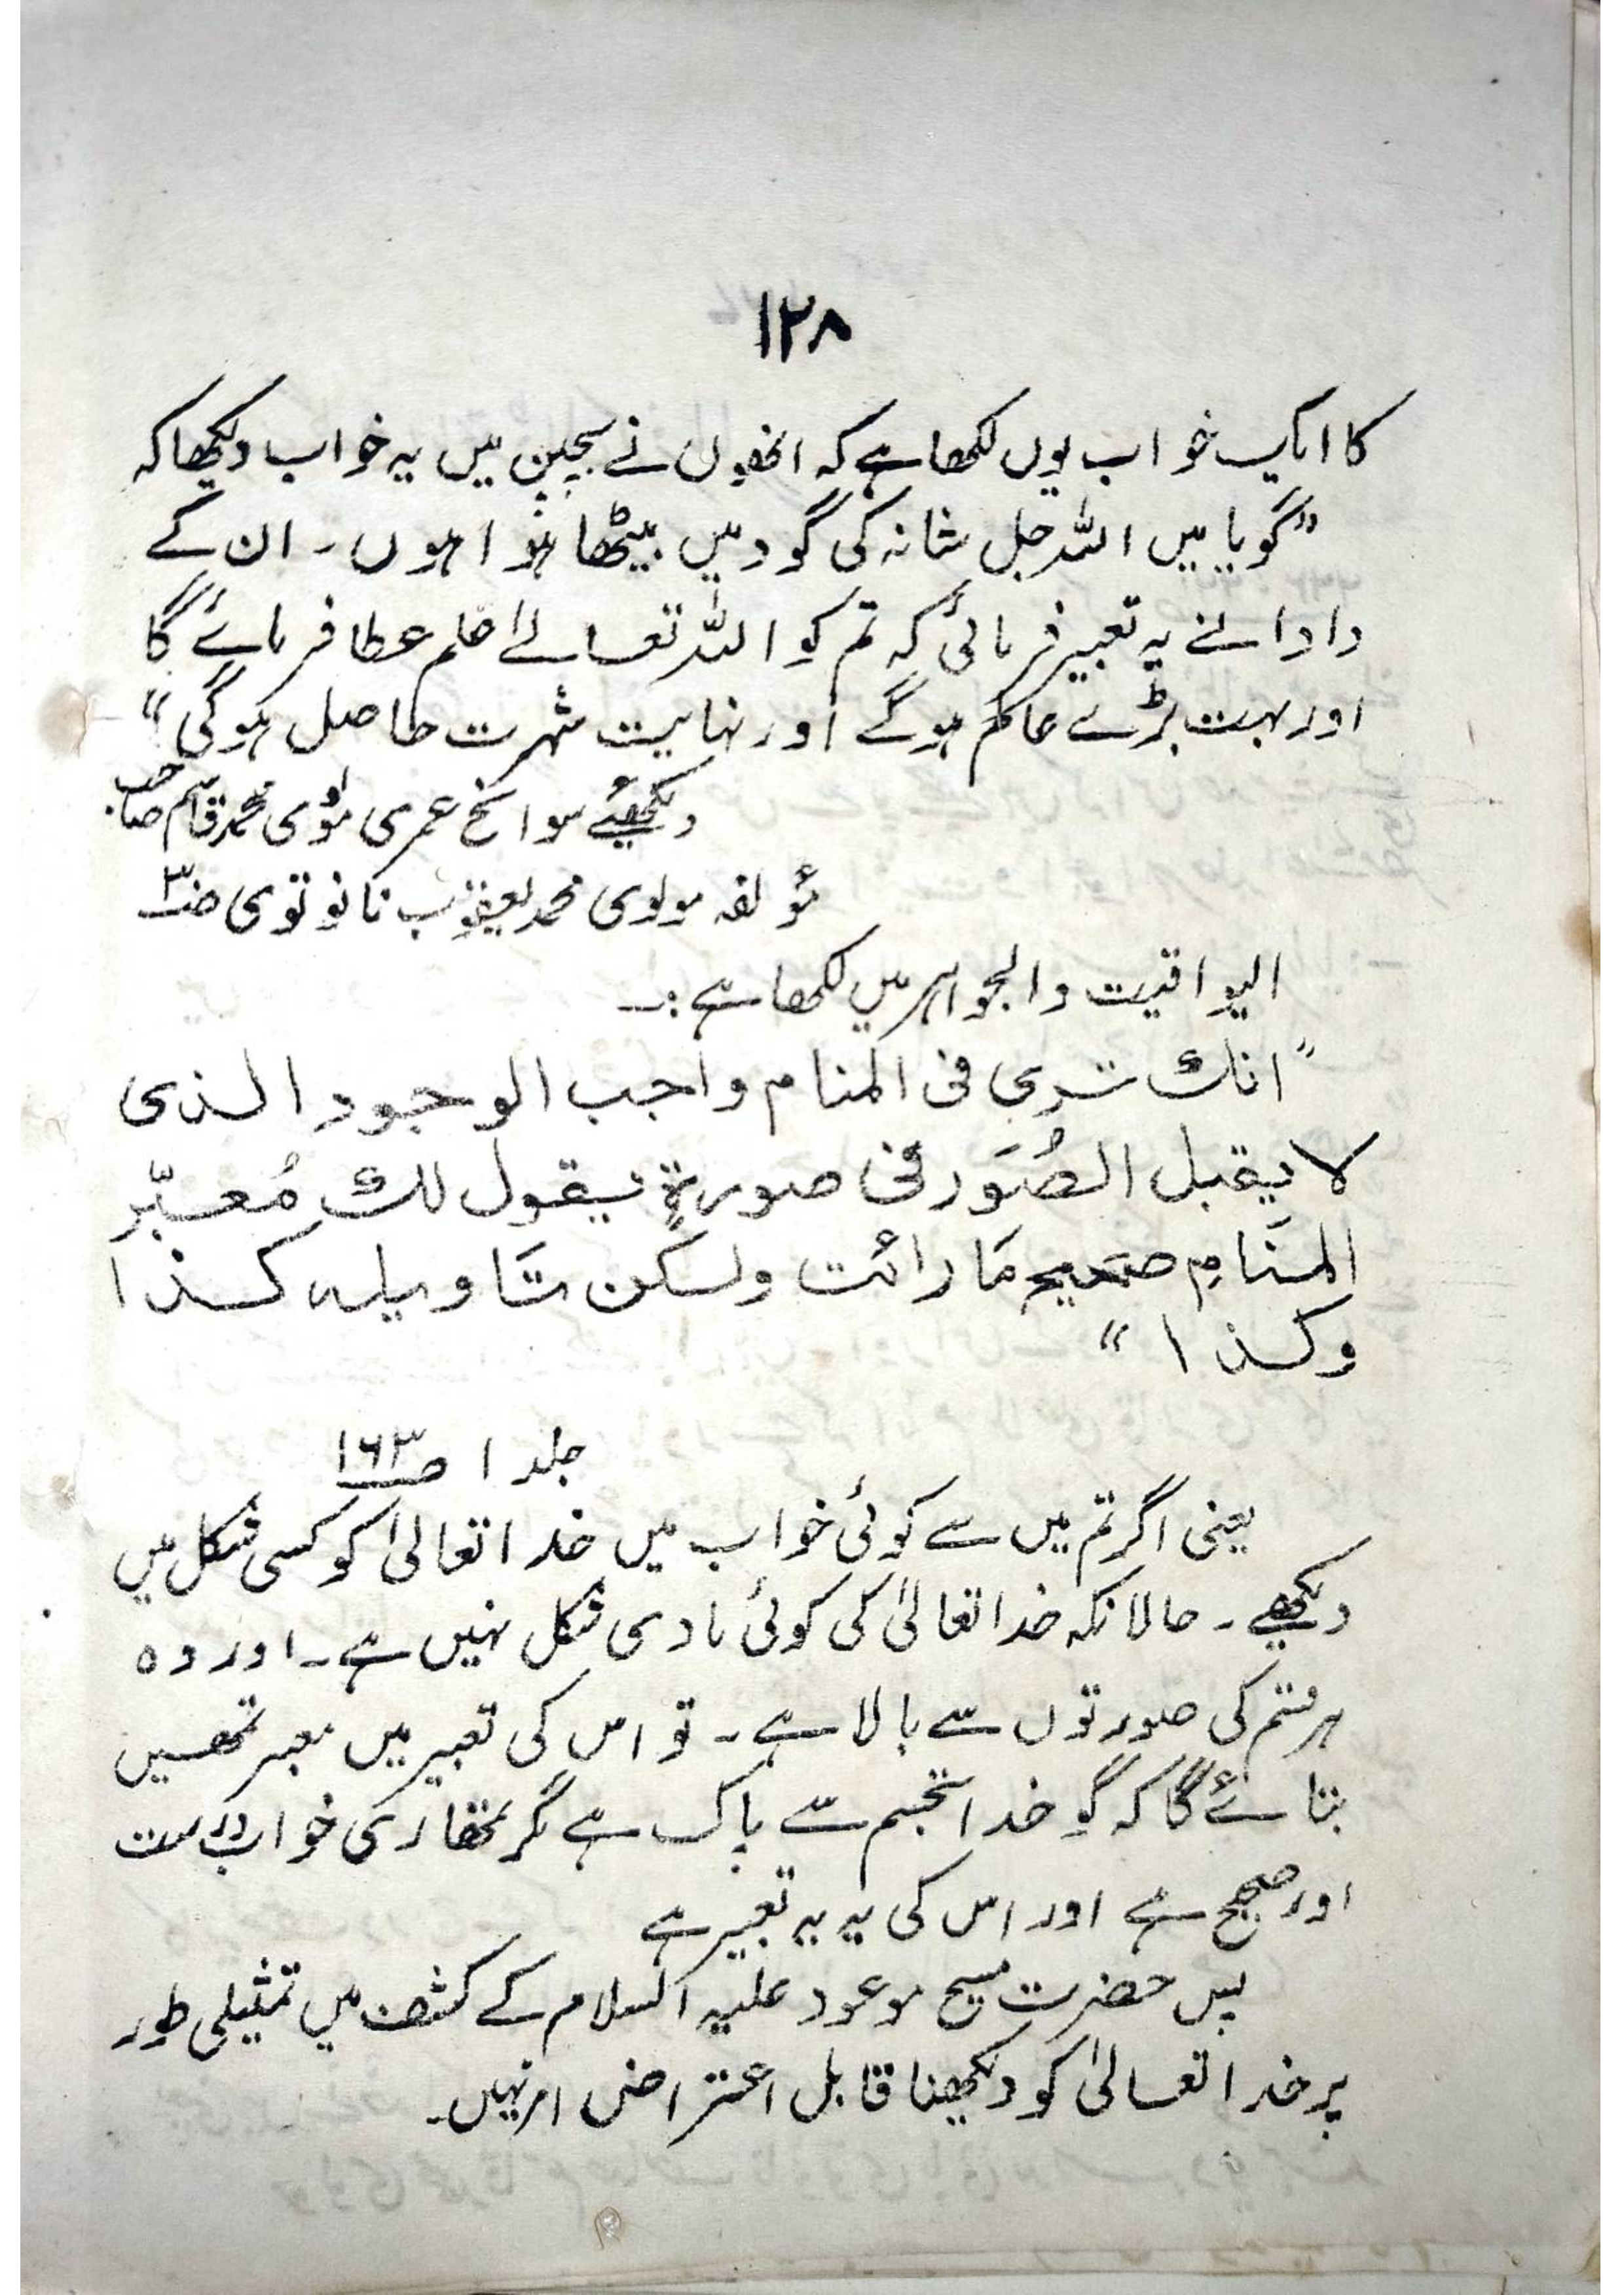 ۱۲۸
کا ایک خواب یوں لکھا ہے کہ انھوں نے بچپن میں یہ خواب دیکھا کہ
"گویا میں اللہ جل شانہ کی گود میں بیٹھا ہوا ہوں۔ ان کے
دادا نے یہ تعبیر فرمائی کہ تم کو اللہ تعالےٰ علم عطا فرمائے گا
اور بہت بڑے عالم ہوگے اور نہایت شہرت حاصل ہوگی"
دیکھئے سوانح عمری مولوی محمد قاسم صاحب
مؤلفہ مولوی محمد یعقوب نانوتوی ص۳
الیواقیت والجواہر میں لکھا ہے:۔
"انك ترى فى المنام واجب الوجود الذى
لا يقبل الصُّوَر فى صورةٍ يقول لك مُعبّر
المنَامِ صحيح مَا رائت ولكن تَاويله كذا
وكذا"
جلد ۱ ص۱۶۳
یعنی اگر تم میں سے کوئی خواب میں خدا تعالیٰ کو کسی شکل میں
دیکھے۔ حالانکہ خدا تعالیٰ کی کوئی مادی شکل نہیں ہے۔ اور وہ
ہر قسم کی صورتوں سے بالا ہے۔ تو اس کی تعبیر میں معبر تمھیں
بتائے گا کہ گو خدا تجسم سے پاک ہے مگر تمھاری خواب درست
اور صحیح ہے اور اس کی یہ یہ تعبیر ہے
پس حضرت مسیح موعود علیہ السلام کے کشف میں تمثیلی طور
پر خدا تعالیٰ کو دیکھنا قابل اعتراض امر نہیں۔